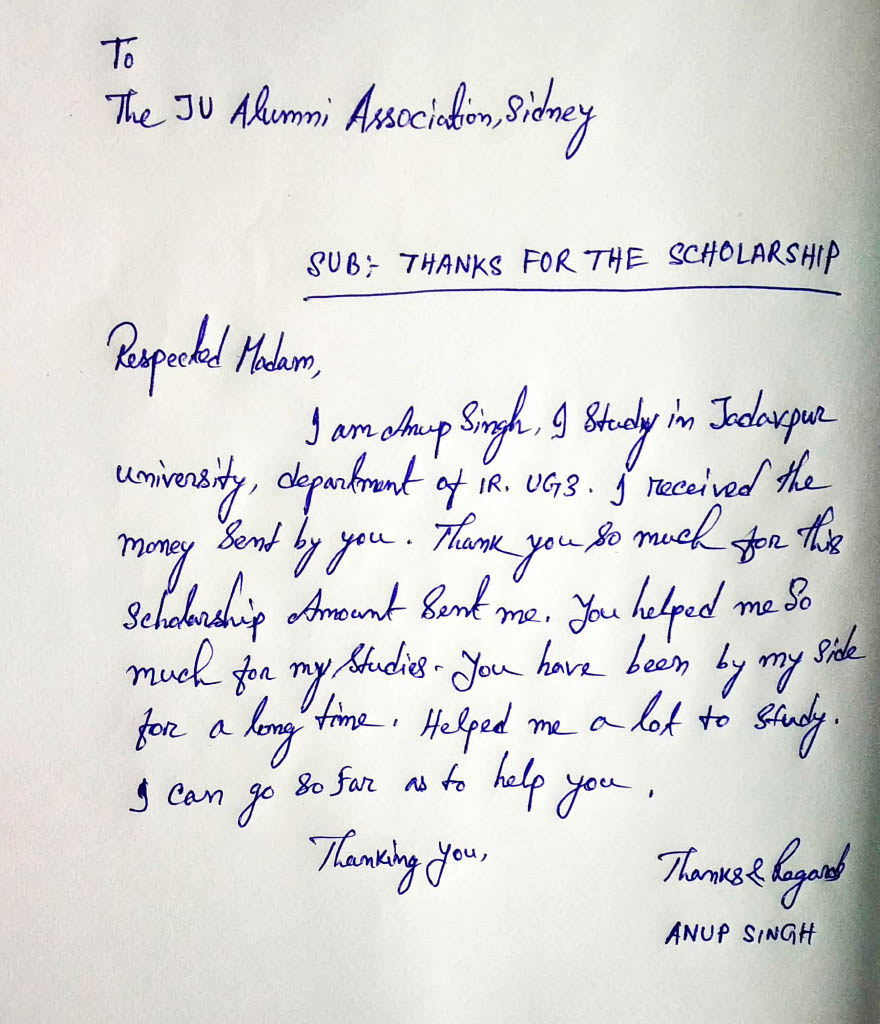 To
The JU Alumni Association, Sidney
SUB:- THANKS FOR THE SCHOLARSHIP
Respected Madam,
I am Anup Singh, I Study in Jadavpur
university, department of IR. UG3. I received the
money Sent by you. Thank you So much for this
Scholarship Amount Sent me. You helped me So
much for my Studies. You have been by my Side
for a long time. Helped me a lot to Study.
I can go So far as to help you.
Thanking you,
Thanks & Regards
ANUP SINGH